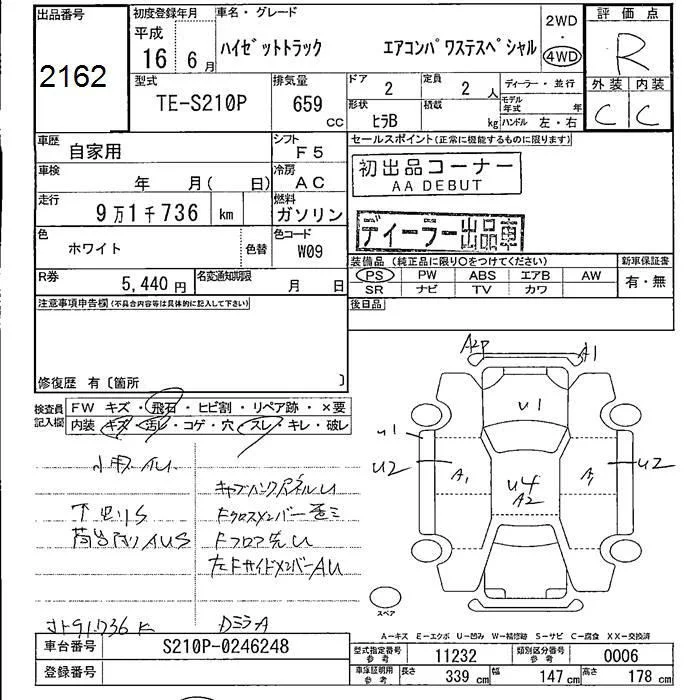 出品番号
2162
初度登録年月
平成
16年 6月
車名・グレード
ハイゼットトラック エアコンパワステスペシャル
2WD
・
4WD
評価点
R
外装 内装
C C
型式
TE-S210P
排気量
659 CC
ドア
2
定員
2人
ディーラー・並行
形状
ヒラB
積載
kg
モデル年式 年
ハンドル 左・右
車歴
自家用
シフト
F5
セールスポイント(正常に機能するものに限ります)
初出品コーナー
AA DEBUT
ディーラー出品車
車検
年 月( 日)
冷房
AC
走行
9万1千736 km
燃料
ガソリン
色
ホワイト
色替
色コード
W09
装備品 (純正品に限り〇をつけてください)
PS PW ABS エアB AW
SR ナビ TV カワ
新車保証書
有・無
R券
5,440円
名変通知期限
月 日
後日品
注意事項申告欄(不具合内容等は具体的に記入して下さい)
修復歴 有〔箇所 〕
検査員記入欄
FW キズ・飛石・ヒビ割・リペア跡・X要
内装・キズ・汚レ・コゲ・穴・スレ・キレ・破レ
小キズAU
キャブバックパネルU
下回りS
Fクロスメンバー
荷台内AUS
FフロアU
左FサイドメンバーAU
メーター91,736K
DミラーA
A2P A1
U1
U1
U2 A1 U4 A2 A1 U2
スペア
A-キズ E-エクボ U-凹み W-補修跡 S-サビ C-腐食 XX-交換済
車台番号
S210P-0246248
登録番号
型式指定番号 参考
11232
類別区分番号 参考
0006
車庫証明用 参考
長さ 339cm 幅 147cm 高さ 178cm